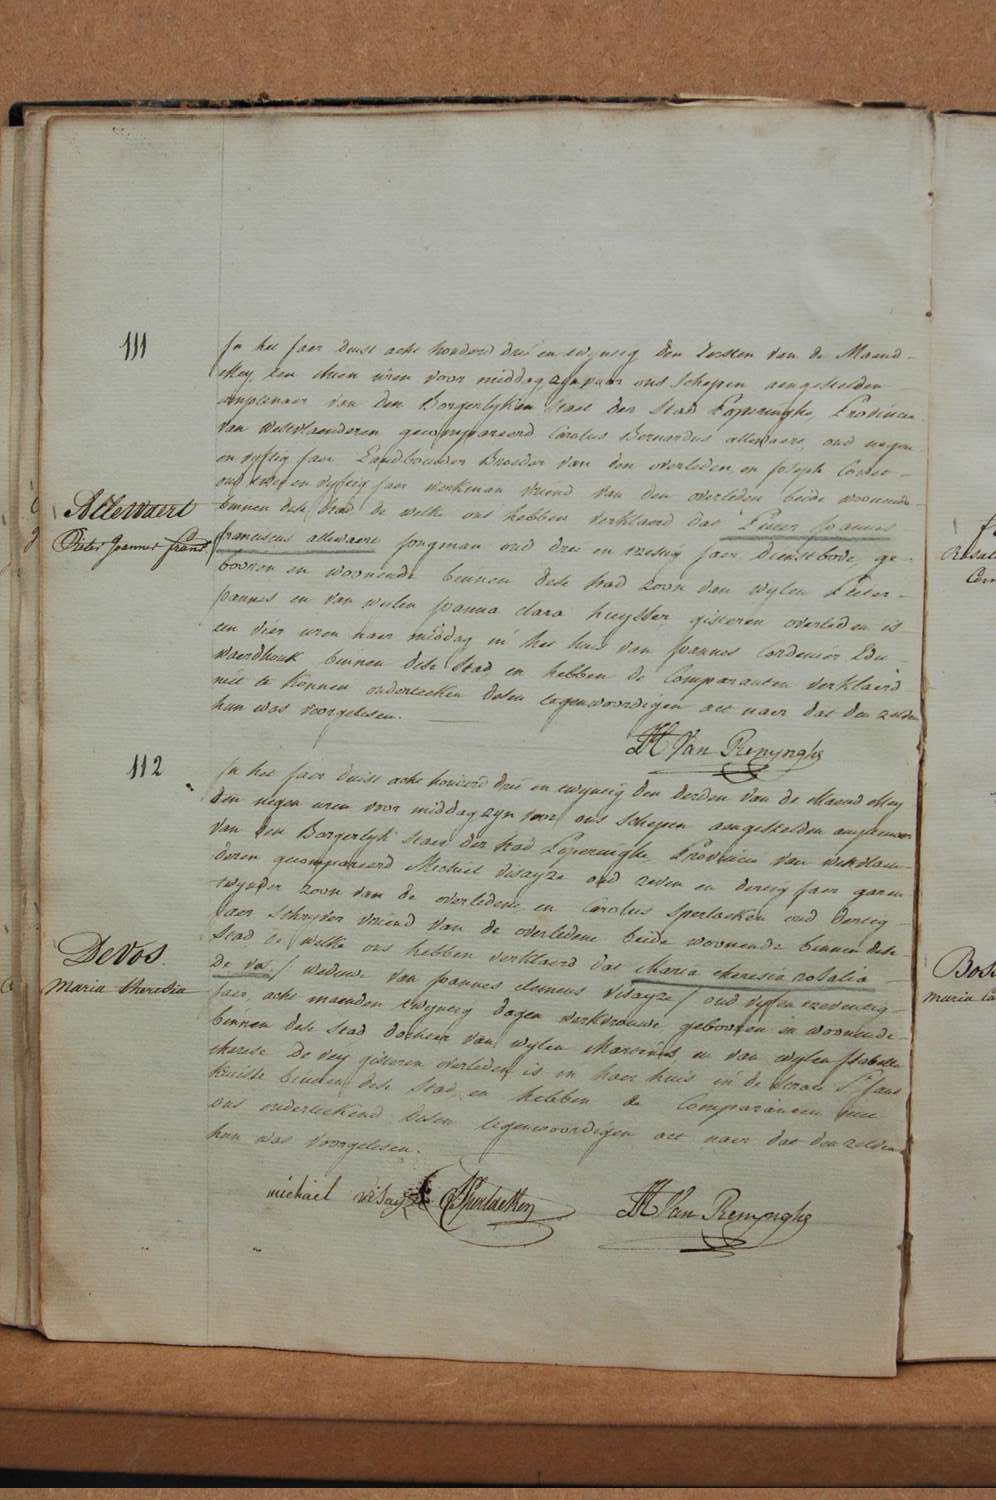 111
In het Jaer duist acht honderd drie en twyntig den Eersten van de Maend
Mey, ten thien uren voor middag zyn voor ons Schepen aengestelden
amptenaer van den Borgerlyken Staet der Stad Poperinghe, Provincie
van Westvlaenderen gecompareerd Carolus Bernardus allewaert, oud negen
en vyftig jaer Landbouwer Broeder van den overleden en Joseph
oud twee en vyftig jaer werkman vriend van den overleden beide woonende
binnen dese stad de welke ons hebben verklaerd dat Pieter Joannes
Allewaert
Pieter Joannes frans
franciscus allewaert jongman oud drie en tzestig jaer dienstbode, ge-
booren en woonende binnen dese stad zoon van wylen Pieter
Joannes en van wylen Joanna clara huyssber gisteren overleden is
ten vier uren naer middag in het huis van Joannes Cordenier Edu-
waerdhouk binnen dese Stad, en hebben de Comparanten verklaerd
niet te konnen onderteeken desen tegenwoordigen act naer dat den zelden
hun was voorgelesen.
Van Renynghe
112
In het Jaer duist acht honderd drie en twyntig den derden van de Maend Mey
ten negen uren voor middag zyn voor ons Schepen aengestelden amptenaer
van den Borgerlyk Staet der stad Poperinghe, Provincie van westvlaen-
deren gecompareerd Michiel visayze oud zeven en dertig jaer garen
twynder zoon van de overledene en Carolus Sperlaeken oud dertig
jaer Schryver vriend van de overledene beide woonende binnen dese
Stad de welke ons hebben verklaerd dat Maria theresia rosalia
Devos
Maria theresia
De vos / weduwe van Joannes clemens visayze / oud vyf en tzeventig
jaer, acht maenden twyntig dagen werkvrouwe gebooren en woonende
binnen dese Stad dochter van wylen Marcus en van wylen Isabelle
therese De vey gisteren overleden is in haer huis in de straet St Jans
kruiste binnen dese Stad, en hebben de Comparanten met
ons onderteekend desen tegenwoordigen act naer dat den zelden
hun was voorgelesen.
michiel visayze Sperlaeken Van Renynghe